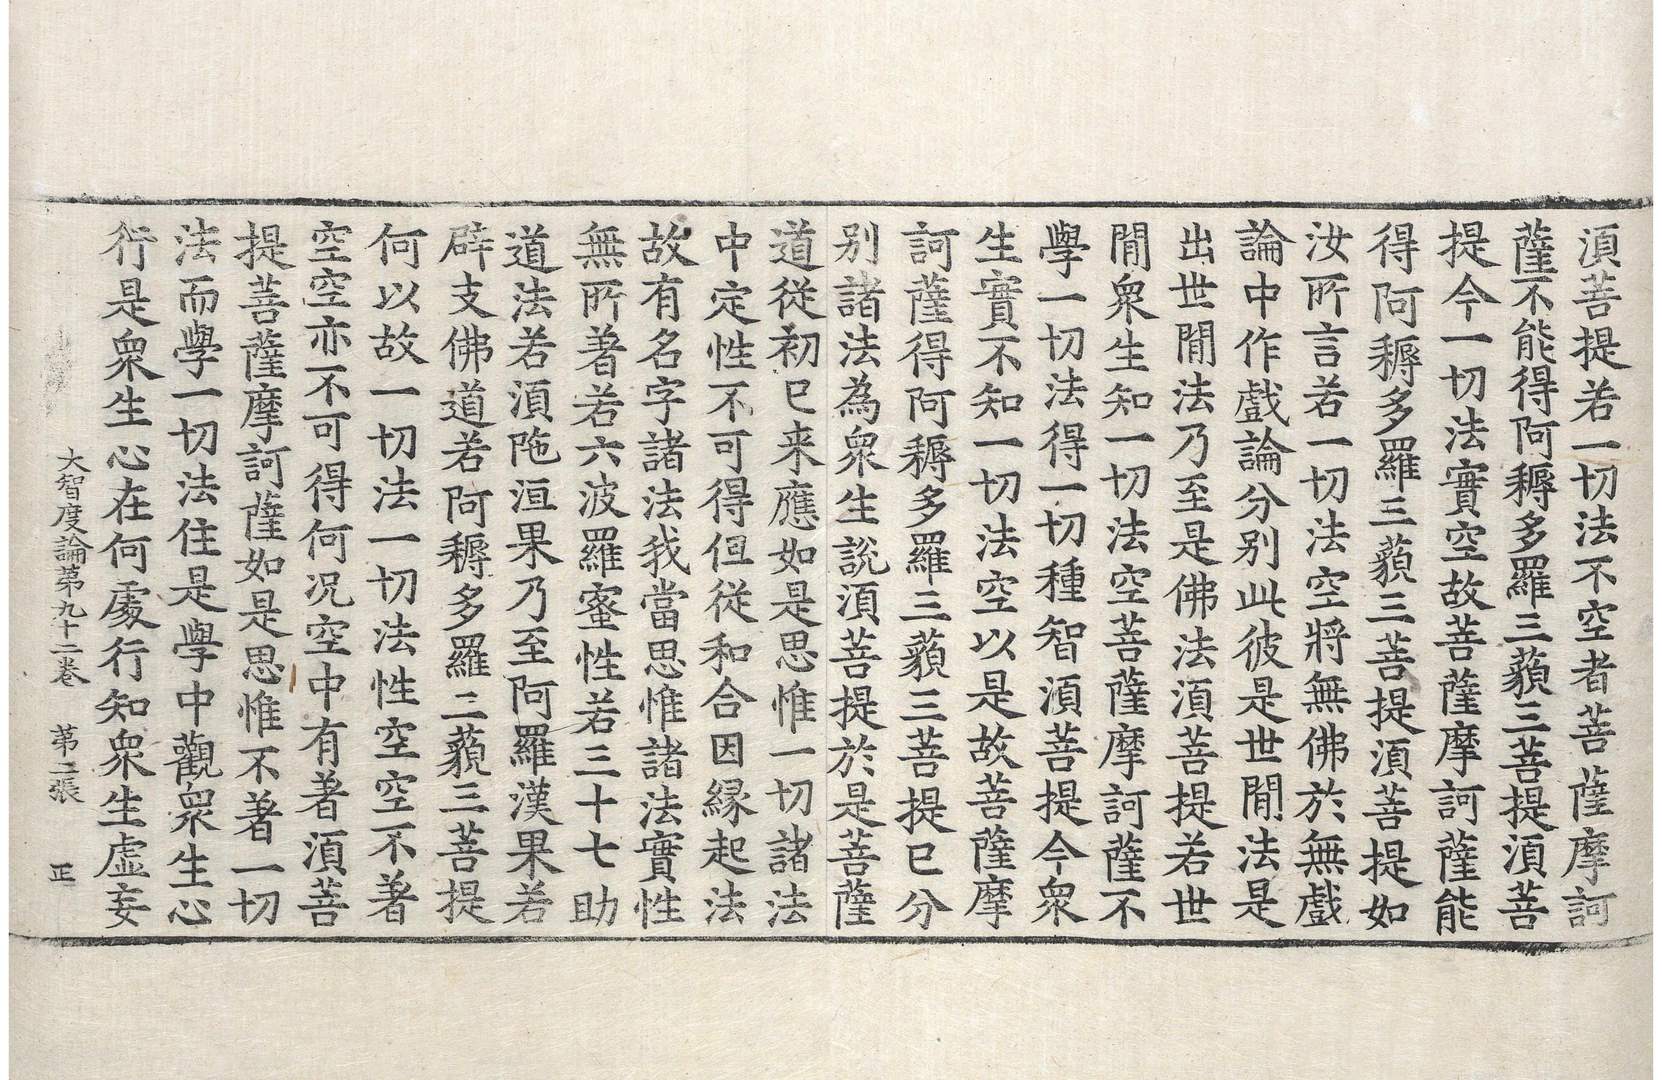 湏菩提若一切法不空者菩薩摩訶
薩不能得阿耨多羅三藐三菩提湏菩
提今一切法實空故菩薩摩訶薩能
得阿耨多羅三藐三菩提湏菩提如
汝所言若一切法空將無佛於無戲
論中作戲論分別此彼是世閒法是
出世閒法乃至是佛法湏菩提若世
閒衆生知一切法空菩薩摩訶薩不
學一切法得一切種智湏菩提今衆
生實不知一切法空以是故菩薩摩
訶薩得阿耨多羅三藐三菩提已分
別諸法為衆生說湏菩提於是菩薩
道從初已来應如是思惟一切諸法
中定性不可得但從和合因縁起法
故有名字諸法我當思惟諸法實性
無所著若六波羅蜜性若三十七助
道法若湏陁洹果乃至阿羅漢果若
辟支佛道若阿耨多羅三藐三菩提
何以故一切法一切法性空空不著
空空亦不可得何况空中有著湏菩
提菩薩摩訶薩如是思惟不著一切
法而學一切法住是學中觀衆生心
行是衆生心在何處行知衆生虛妄
大智度論第九十二卷 第二張 正